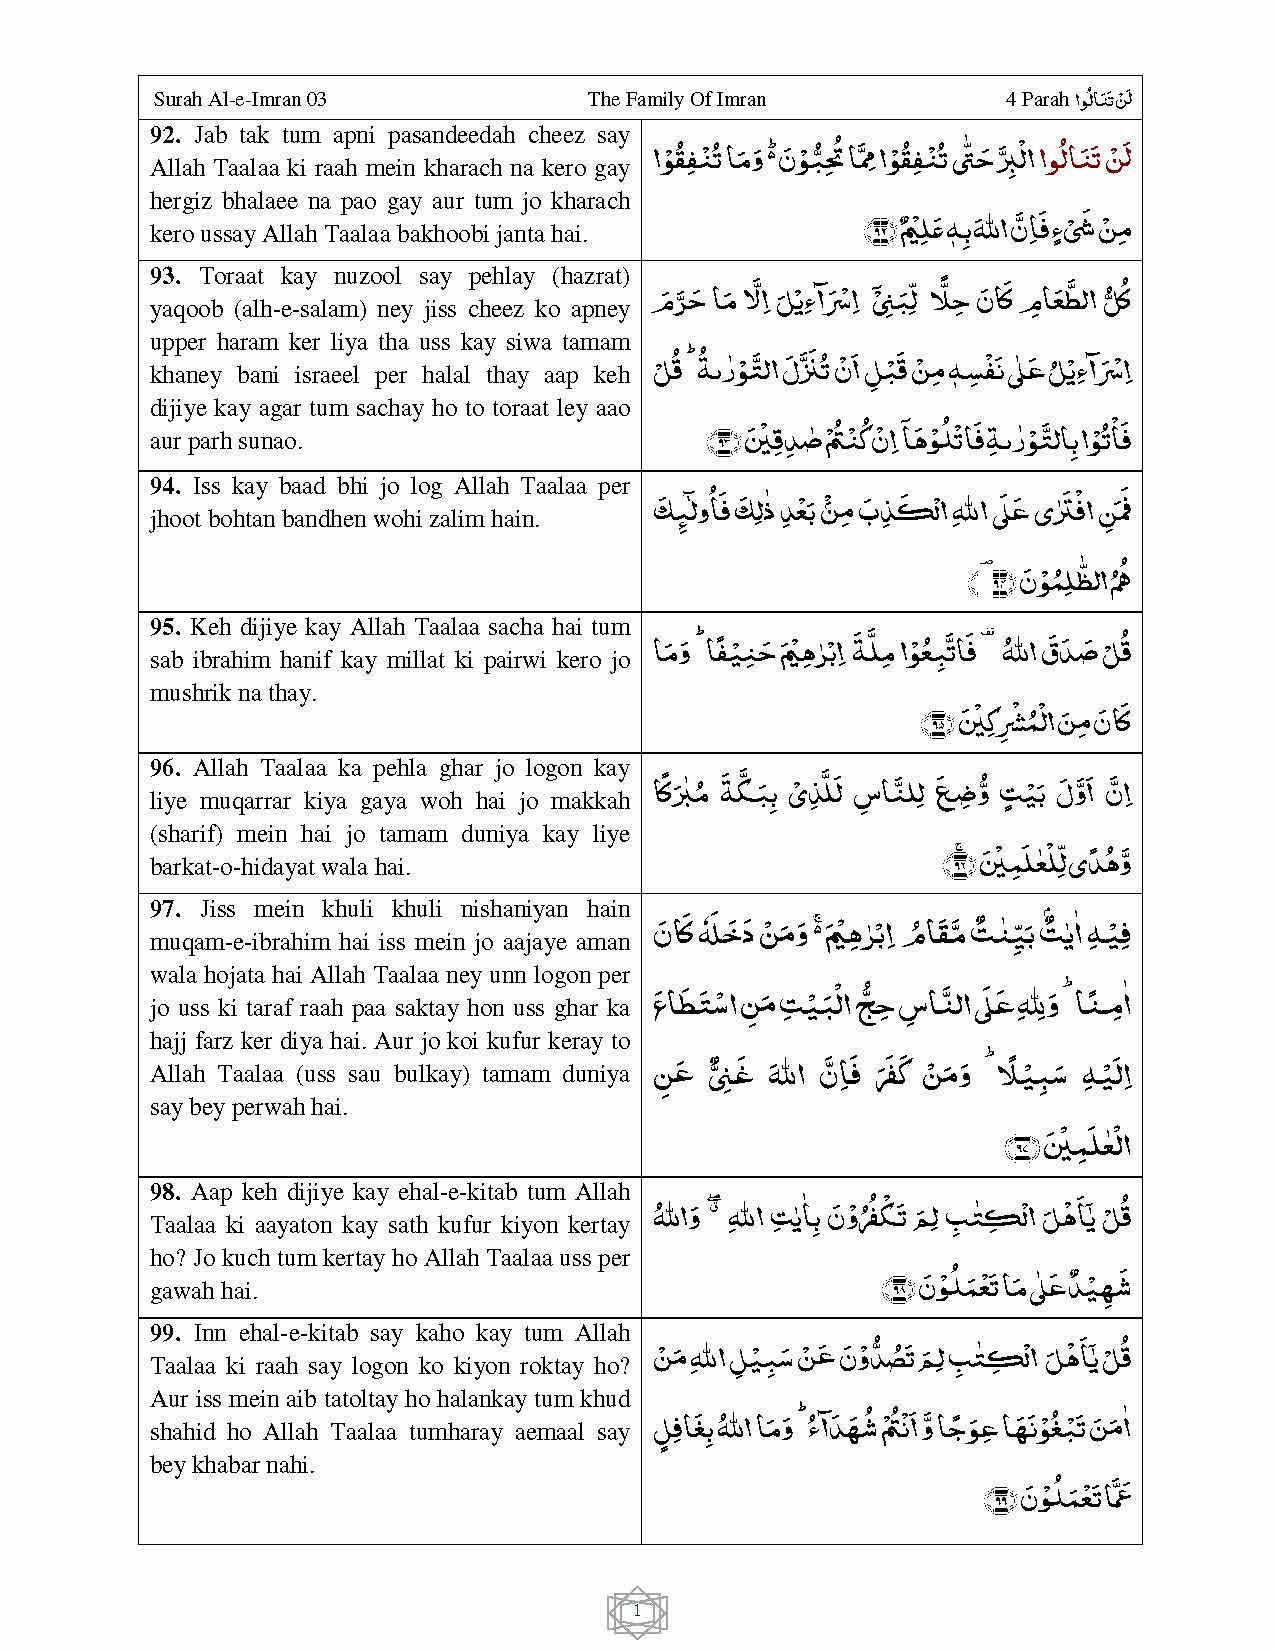 Surah Al-e-Imran 03 The Family Of Imran 4 Parah لَنْ تَنَالُوا
92. Jab tak tum apni pasandeedah cheez say
Allah Taalaa ki raah mein kharach na kero gay
hergiz bhalaee na pao gay aur tum jo kharach
kero ussay Allah Taalaa bakhoobi janta hai.
لَنْ تَنَالُوا الْبِرَّ حَتّٰى تُنْفِقُوْا مِمَّا تُحِبُّوْنَ ؕ۬ وَمَا تُنْفِقُوْا
مِنْ شَىْءٍ فَاِنَّ اللّٰهَ بِهٖ عَلِيْمٌ ﴿۹۲﴾
93. Toraat kay nuzool say pehlay (hazrat)
yaqoob (alh-e-salam) ney jiss cheez ko apney
upper haram ker liya tha uss kay siwa tamam
khaney bani israeel per halal thay aap keh
dijiye kay agar tum sachay ho to toraat ley aao
aur parh sunao.
كُلُّ الطَّعَامِ كَانَ حِلًّا لِّبَنِىْۤ اِسْرَآءِيْلَ اِلَّا مَا حَرَّمَ
اِسْرَآءِيْلُ عَلٰى نَفْسِهٖ مِنْ قَبْلِ اَنْ تُنَزَّلَ التَّوْرٰٮةُ ؕ قُلْ
فَاْتُوْا بِالتَّوْرٰٮةِ فَاتْلُوْهَاۤ اِنْ كُنْتُمْ صٰدِقِيْنَ ﴿۹۳﴾
94. Iss kay baad bhi jo log Allah Taalaa per
jhoot bohtan bandhen wohi zalim hain.
فَمَنِ افْتَرٰى عَلَى اللّٰهِ الْكَذِبَ مِنْۢ بَعْدِ ذٰلِكَ فَاُولٰٓٮِٕكَ
هُمُ الظّٰلِمُوْنَ ﴿۹۴﴾ ؔ
95. Keh dijiye kay Allah Taalaa sacha hai tum
sab ibrahim hanif kay millat ki pairwi kero jo
mushrik na thay.
قُلْ صَدَقَ اللّٰهُ ۟ فَاتَّبِعُوْا مِلَّةَ اِبْرٰهِيْمَ حَنِيْفًا ؕ وَمَا
كَانَ مِنَ الْمُشْرِكِيْنَ ﴿۹۵﴾
96. Allah Taalaa ka pehla ghar jo logon kay
liye muqarrar kiya gaya woh hai jo makkah
(sharif) mein hai jo tamam duniya kay liye
barkat-o-hidayat wala hai.
اِنَّ اَوَّلَ بَيْتٍ وُّضِعَ لِلنَّاسِ لَلَّذِىْ بِبَكَّةَ مُبٰرَكًا
وَّهُدًى لِّلْعٰلَمِيْنَ ۚ‏ ﴿۹۶﴾
97. Jiss mein khuli khuli nishaniyan hain
muqam-e-ibrahim hai iss mein jo aajaye aman
wala hojata hai Allah Taalaa ney unn logon per
jo uss ki taraf raah paa saktay hon uss ghar ka
hajj farz ker diya hai. Aur jo koi kufur keray to
Allah Taalaa (uss sau bulkay) tamam duniya
say bey perwah hai.
فِيْهِ اٰيٰتٌۢ بَيِّنٰتٌ مَّقَامُ اِبْرٰهِيْمَ ۚ۬ وَمَنْ دَخَلَهٗ كَانَ
اٰمِنًا ؕ وَلِلّٰهِ عَلَى النَّاسِ حِجُّ الْبَيْتِ مَنِ اسْتَطَاعَ
اِلَيْهِ سَبِيْلًا ؕ وَمَنْ كَفَرَ فَاِنَّ اللّٰهَ غَنِىٌّ عَنِ
الْعٰلَمِيْنَ ﴿۹۷﴾
98. Aap keh dijiye kay ehal-e-kitab tum Allah
Taalaa ki aayaton kay sath kufur kiyon kertay
ho? Jo kuch tum kertay ho Allah Taalaa uss per
gawah hai.
قُلْ يٰۤاَهْلَ الْكِتٰبِ لِمَ تَكْفُرُوْنَ بِاٰيٰتِ اللّٰهِ ۖۗ وَاللّٰهُ
شَهِيْدٌ عَلٰى مَا تَعْمَلُوْنَ ﴿۹۸﴾
99. Inn ehal-e-kitab say kaho kay tum Allah
Taalaa ki raah say logon ko kiyon roktay ho?
Aur iss mein aib tatoltay ho halankay tum khud
shahid ho Allah Taalaa tumharay aemaal say
bey khabar nahi.
قُلْ يٰۤاَهْلَ الْكِتٰبِ لِمَ تَصُدُّوْنَ عَنْ سَبِيْلِ اللّٰهِ مَنْ
اٰمَنَ تَبْغُوْنَهَا عِوَجًا وَّاَنْتُمْ شُهَدَآءُ ؕ وَمَا اللّٰهُ بِغَافِلٍ
عَمَّا تَعْمَلُوْنَ ﴿۹۹﴾
1